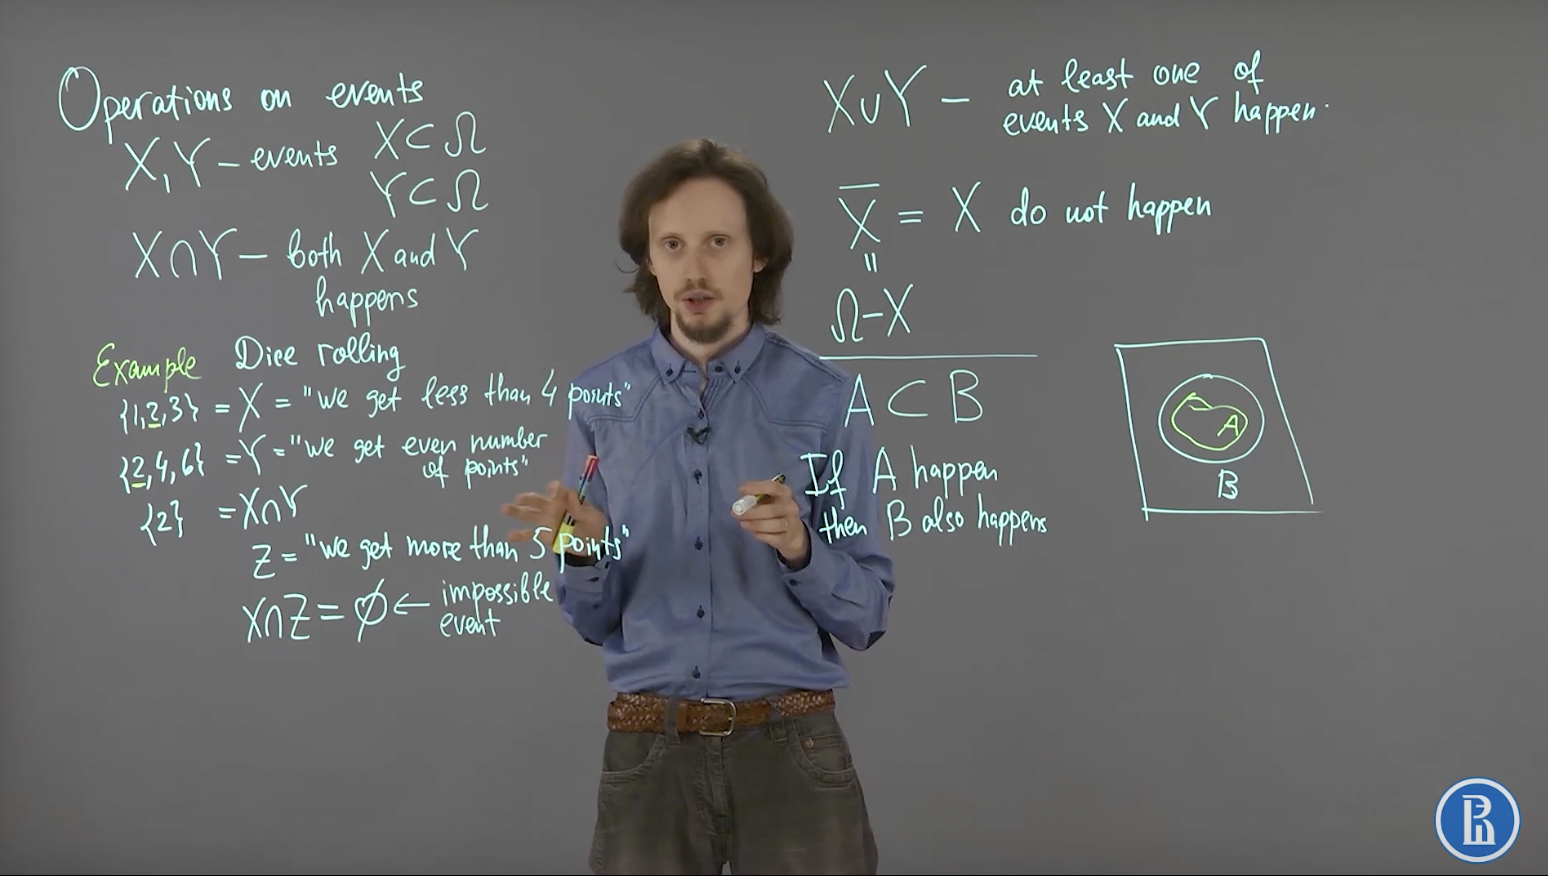 Operations on events
X, Y – events X ⊂ Ω
Y ⊂ Ω
X ∩ Y – both X and Y
happens
Example Dice rolling
{1,2,3} = X = "we get less than 4 points"
{2,4,6} = Y = "we get even number
of points"
{2} = X∩Y
Z = "we get more than 5 points"
X∩Z = ∅ ← impossible
event
X ∪ Y – at least one of
events X and Y happen.
X̅ = X do not happen
=
Ω – X
A ⊂ B
If A happen
then B also happens
A
B